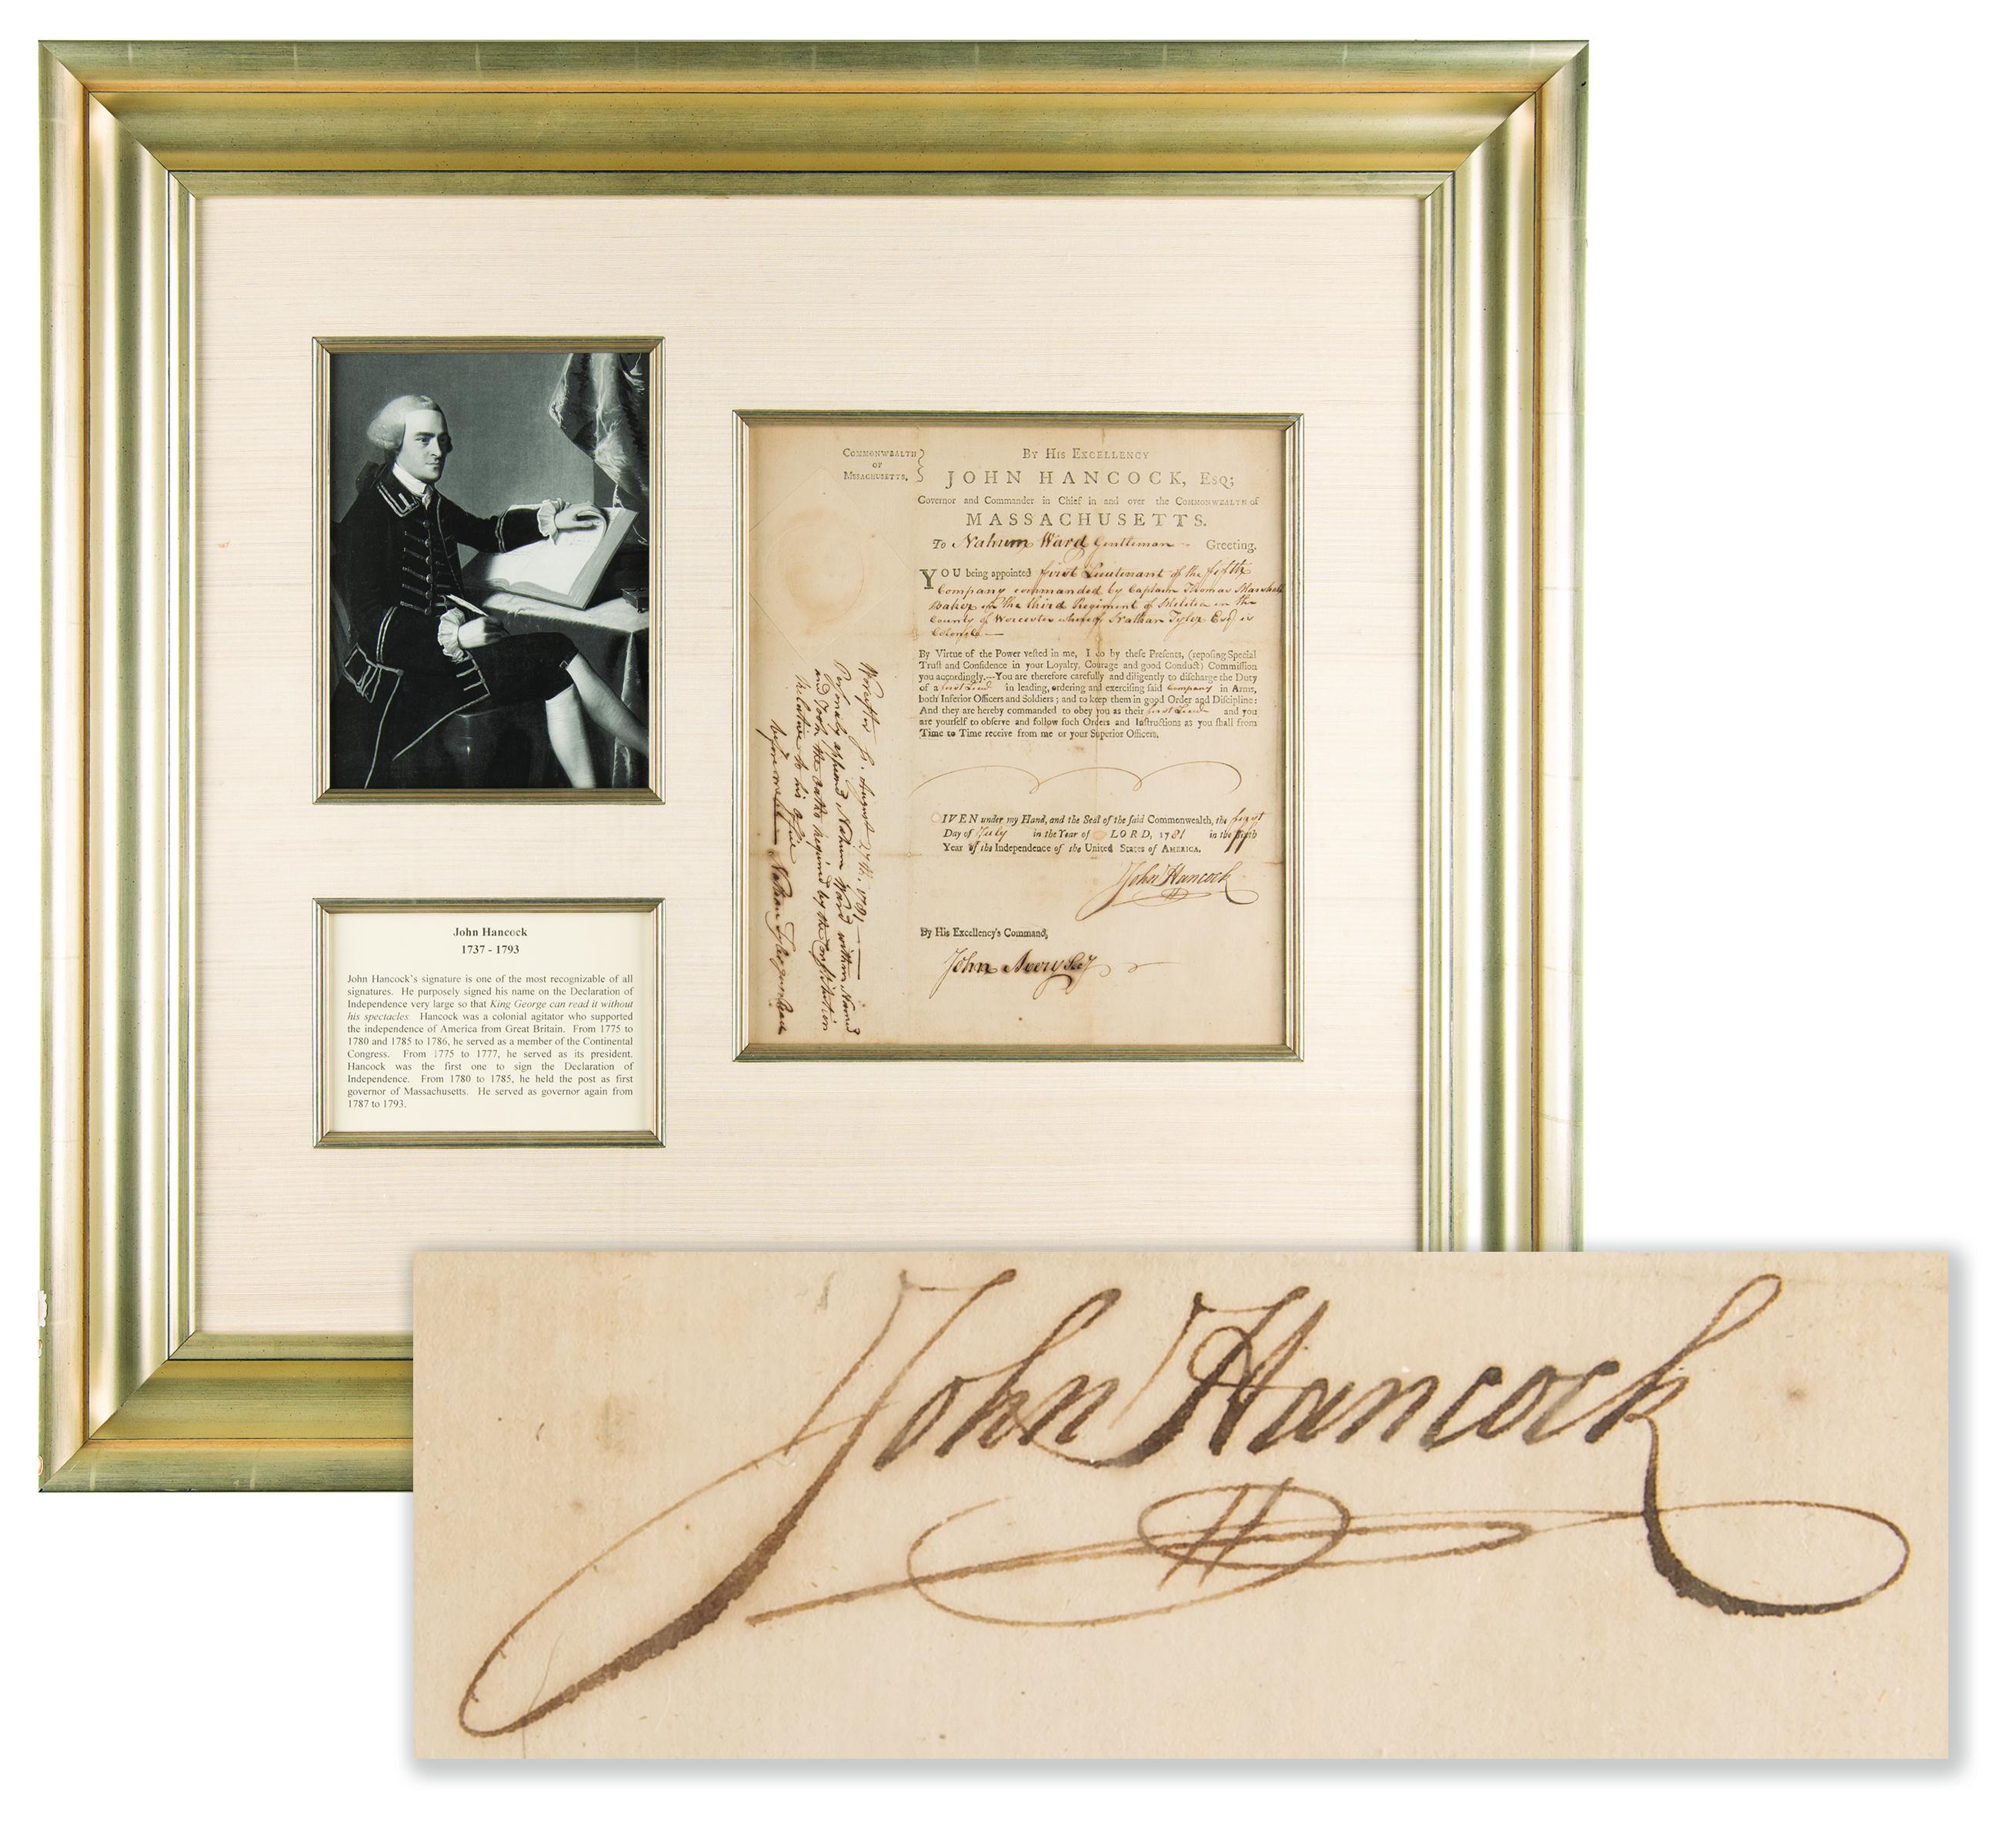 COMMONWEALTH
OF
MSSACHUSETTS,
BY HIS EXCELLENCY
JOHN HANCOCK, ESQ;
Governor and Commander in Chief in and over the COMMONWEALTH of
MASSACHUSETTS.
To Nahum Ward Gentleman Greeting.
YOU being appointed first Lieutenant of the fifth
Company commanded by Captain Thomas Marshall
Baker in the third Regiment of Militia in the
County of Worcester whereof Nathan Tyler Esq is
Colonel
By Virtue of the Power vested in me, I do by these Presents, (reposing Special
Trust and Confidence in your Loyalty, Courage and good Conduct) Commission
you accordingly.—You are therefore carefully and diligently to discharge the Duty
of a first Lieut in leading, ordering and exercising said Company in Arms,
both Inferior Officers and Soldiers; and to keep them in good Order and Discipline:
And they are hereby commanded to obey you as their first Lieut and you
are yourself to observe and follow such Orders and Instructions as you shall from
Time to Time receive from me or your Superior Officers.
IVEN under my Hand, and the Seal of the said Commonwealth, the first
Day of July in the Year of LORD, 1781 in the fifth
Year of the Independence of the United States of AMERICA.
John Hancock
By His Excellency's Command,
John Avery Secy
Worcester ss. August 27th. 1781
Personally appeared Nahum Ward within Named
and Took the oaths required by the Constitution
relative to his office
before me Nathan Tyler
John Hancock
1737 - 1793
John Hancock's signature is one of the most recognizable of all
signatures. He purposely signed his name on the Declaration of
Independence very large so that King George can read it without
his spectacles. Hancock was a colonial agitator who supported
the independence of America from Great Britain. From 1775 to
1780 and 1785 to 1786, he served as a member of the Continental
Congress. From 1775 to 1777, he served as its president.
Hancock was the first one to sign the Declaration of
Independence. From 1780 to 1785, he held the post as first
governor of Massachusetts. He served as governor again from
1787 to 1793.
John Hancock